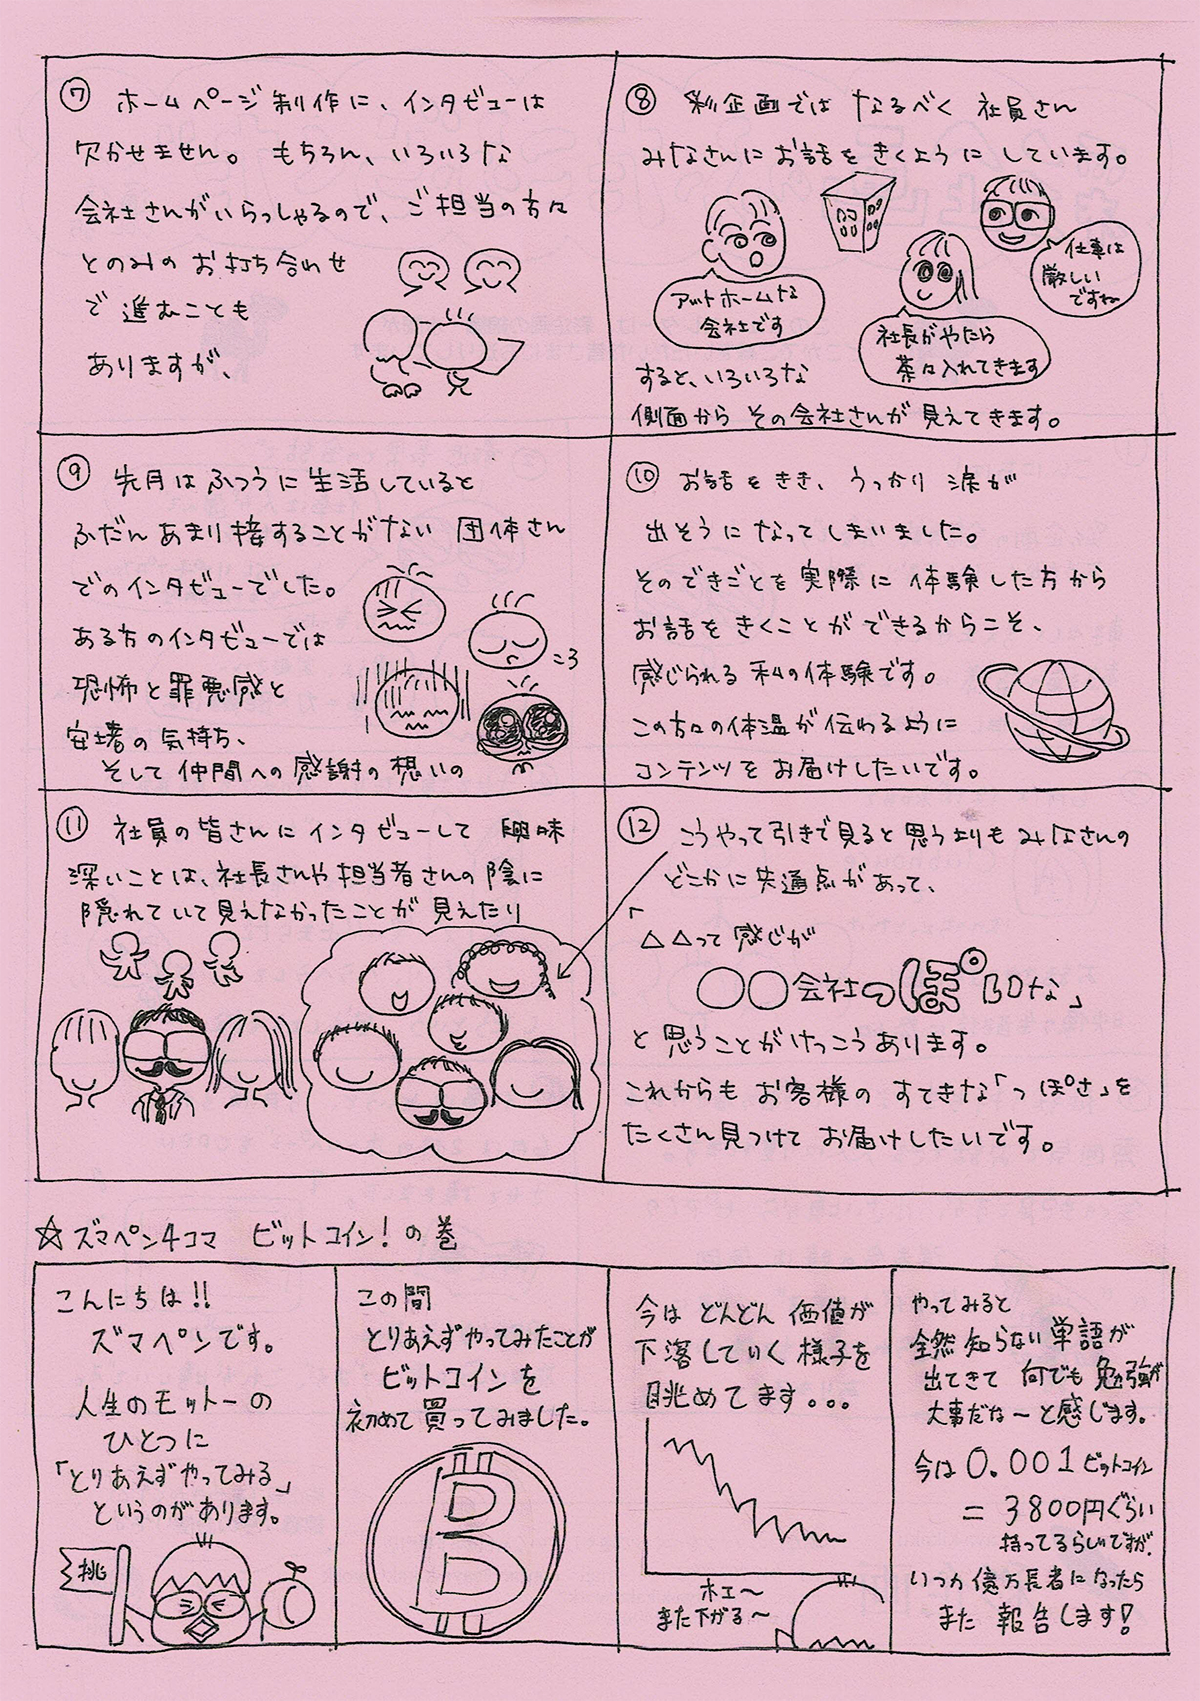 ⑦ ホームページ制作に、インタビューは
欠かせません。もちろん、いろいろな
会社さんがいらっしゃるので、ご担当の方々
とのみの お打ち合わせ
で 進むことも
ありますが、
⑧ 彩企画では なるべく 社員さん
みなさんに お話を きくように しています。
アットホームな
会社です
社長がやたら
茶々入れてきます
仕事は
厳しい
ですね
すると、いろいろな
側面から その会社さんが 見えてきます。
⑨ 先月は ふつうに 生活していると
ふだん あまり 接することがない 団体さん
でのインタビューでした。
ある方のインタビューでは
恐怖と 罪悪感と
安堵の 気持ち、
そして 仲間への 感謝の 想いの
ころ
⑩ お話を きき、うっかり 涙が
出そうに なって しまいました。
そのできごとを 実際に 体験した方から
お話を きくことが できるからこそ、
感じられる 私の体験です。
この方々の体温が 伝わるように
コンテンツを お届けしたいです。
⑪ 社員の皆さんに インタビューして 興味
深いことは、社長さんや 担当者さんの 陰に
隠れていて 見えなかったことが 見えたり
⑫ こうやって引きで見ると 思うよりも みなさんの
どこかに 共通点があって、
「△△って 感じが
○○会社のっぽいな」
と 思うことが けっこう あります。
これからも お客様の すてきな「っぽさ」を
たくさん見つけて お届けしたいです。
☆ズマペン4コマ ビットコイン!の巻
こんにちは!!
ズマペンです。
人生のモットーの
ひとつに
「とりあえずやってみる」
というのがあります。
挑
この間
とりあえずやってみたことが
ビットコインを
初めて 買ってみました。
B
今は どんどん 価値が
下落していく 様子を
眺めてます。。。
ホエ〜
また下がる〜
やってみると
全然知らない単語が
出てきて 何でも 勉強が
大事だな〜と感じます。
今は 0.001ビットコイン
= 3800円ぐらい
持ってるらしいですが、
いつか 億万長者になったら
また 報告します!